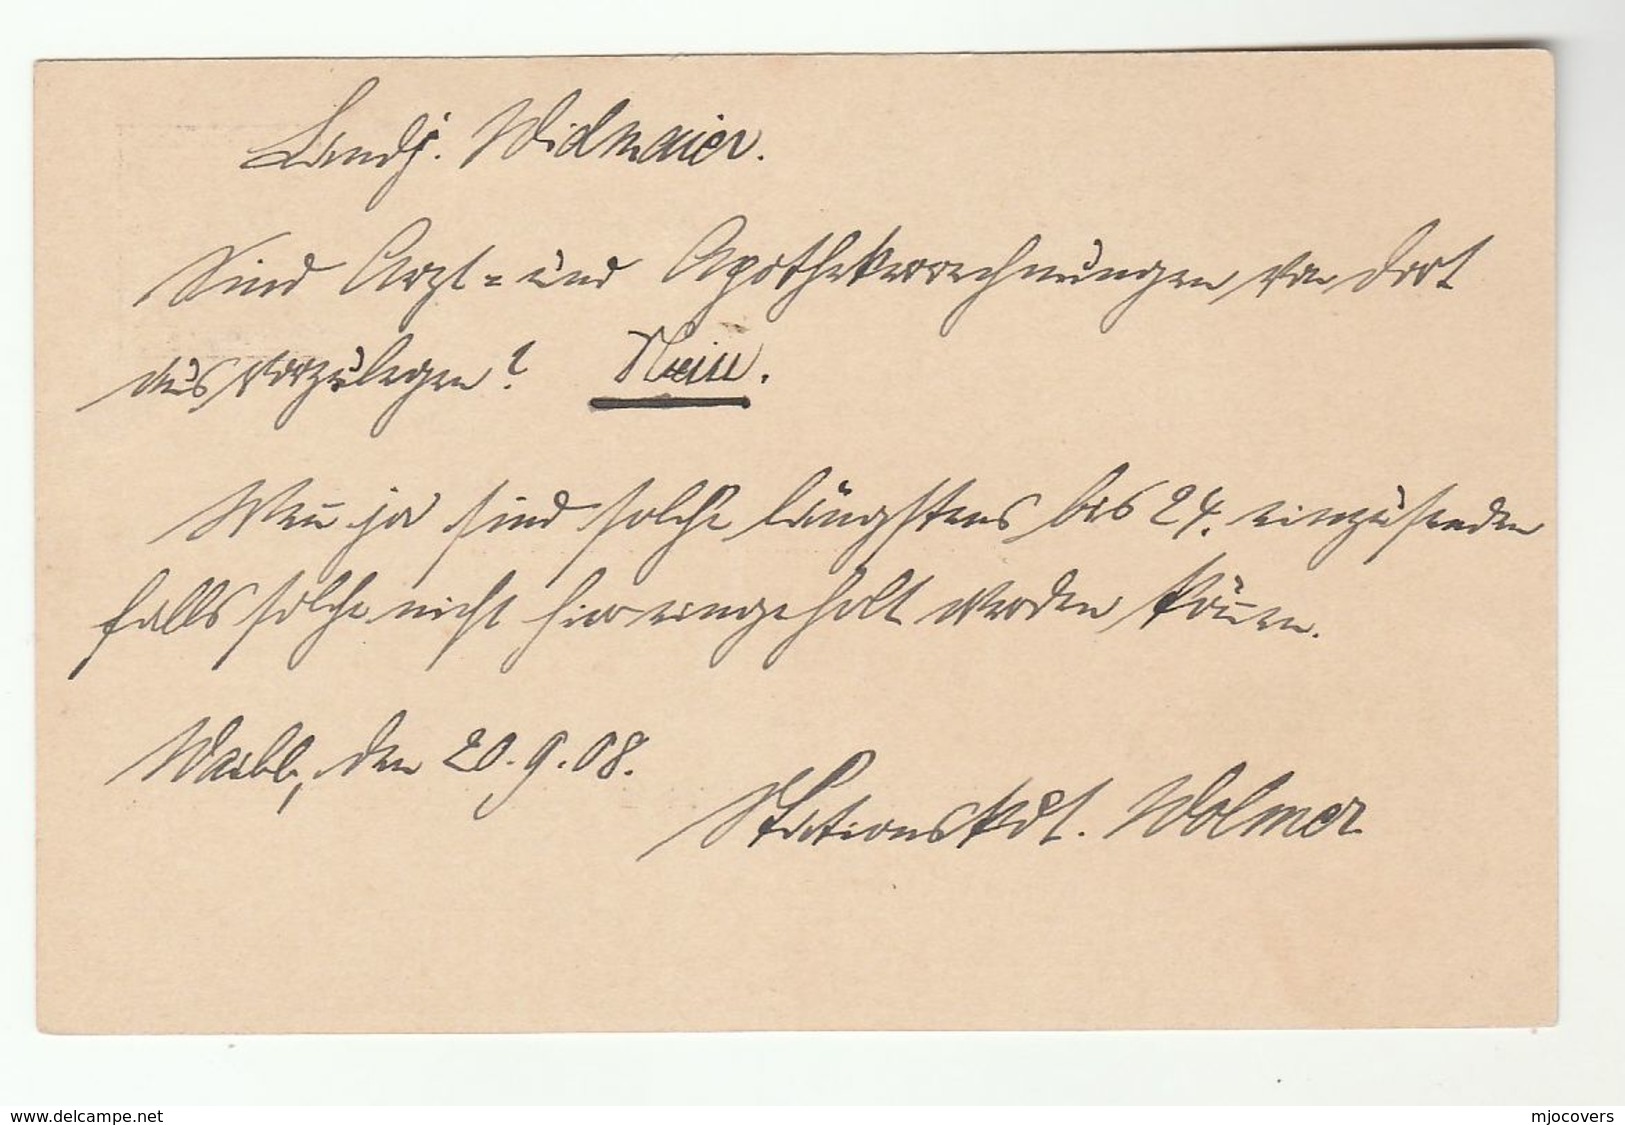 Landj. Widmaier.
Sind Arzt- und Apothekerrechnungen von dort
aus vorzulegen? Nein.
Wen̅ ja sind solche längstens bis 24. einzusenden
falls solche nicht hier eingeholt werden kön̅en.
Waibl, den 20.9.08.
Stationskdt. Wolmer
www.delcampe.net
mjocovers